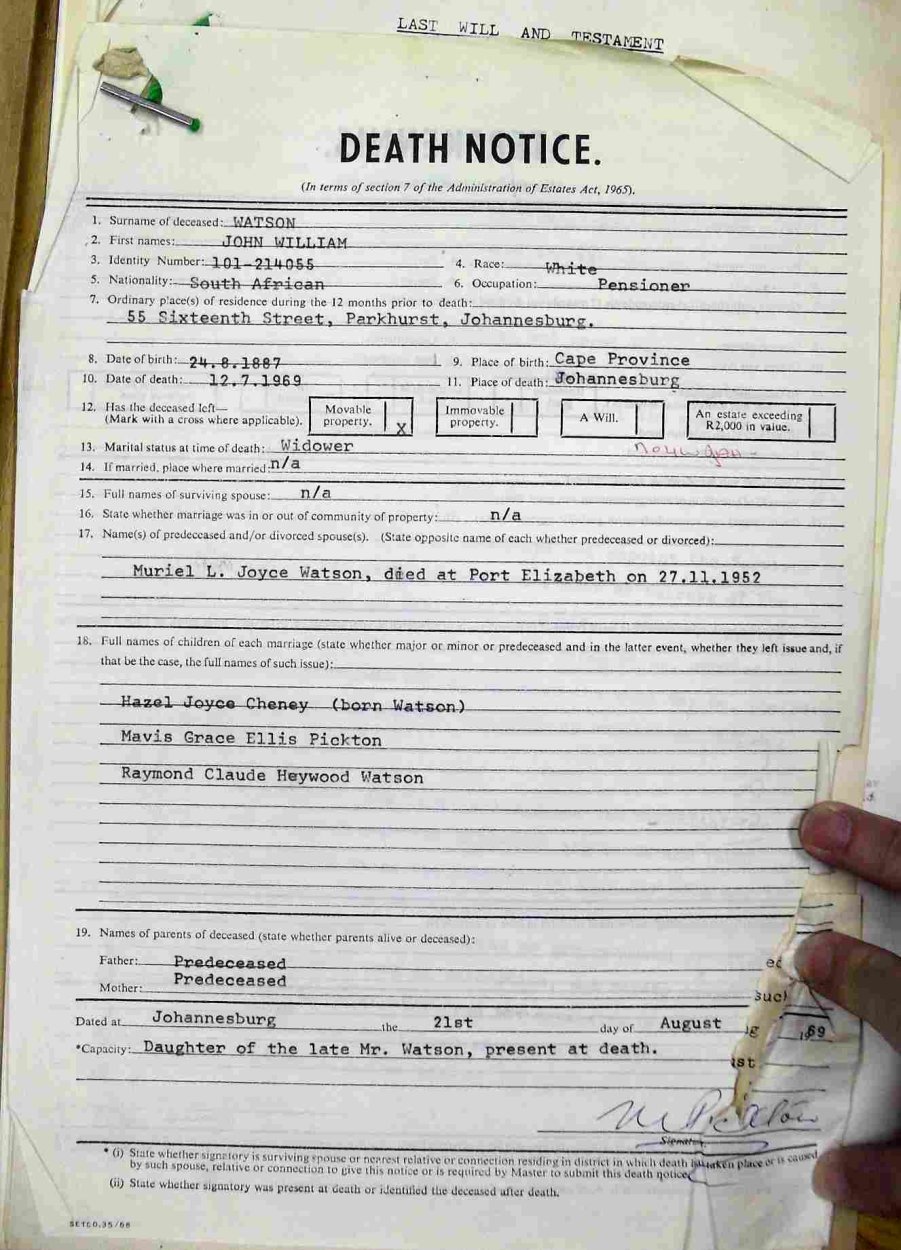 LAST WILL AND TESTAMENT
DEATH NOTICE.
(In terms of section 7 of the Administration of Estates Act, 1965).
1. Surname of deceased: WATSON
2. First names: JOHN WILLIAM
3. Identity Number: 101-214055 4. Race: White
5. Nationality: South African 6. Occupation: Pensioner
7. Ordinary place(s) of residence during the 12 months prior to death:
55 Sixteenth Street, Parkhurst, Johannesburg.
8. Date of birth: 24.8.1887 9. Place of birth: Cape Province
10. Date of death: 12.7.1969 11. Place of death: Johannesburg
12. Has the deceased left— Movable Immovable A Will. An estate exceeding
(Mark with a cross where applicable). property. X property. R2,000 in value.
13. Marital status at time of death: Widower
14. If married, place where married: n/a
15. Full names of surviving spouse: n/a
16. State whether marriage was in or out of community of property: n/a
17. Name(s) of predeceased and/or divorced spouse(s). (State opposite name of each whether predeceased or divorced):
Muriel L. Joyce Watson, died at Port Elizabeth on 27.11.1952
18. Full names of children of each marriage (state whether major or minor or predeceased and in the latter event, whether they left issue and, if
that be the case, the full names of such issue):
Hazel Joyce Cheney (born Watson)
Mavis Grace Ellis Pickton
Raymond Claude Heywood Watson
19. Names of parents of deceased (state whether parents alive or deceased):
Father: Predeceased
Mother: Predeceased
such
Dated at Johannesburg the 21st day of August 69
*Capacity: Daughter of the late Mr. Watson, present at death.
M Pickton
* (i) State whether signatory is surviving spouse or nearest relative or connection residing in district in which death has taken place or is caused
by such spouse, relative or connection to give this notice or is required by Master to submit this death notice.
(ii) State whether signatory was present at death or identified the deceased after death.